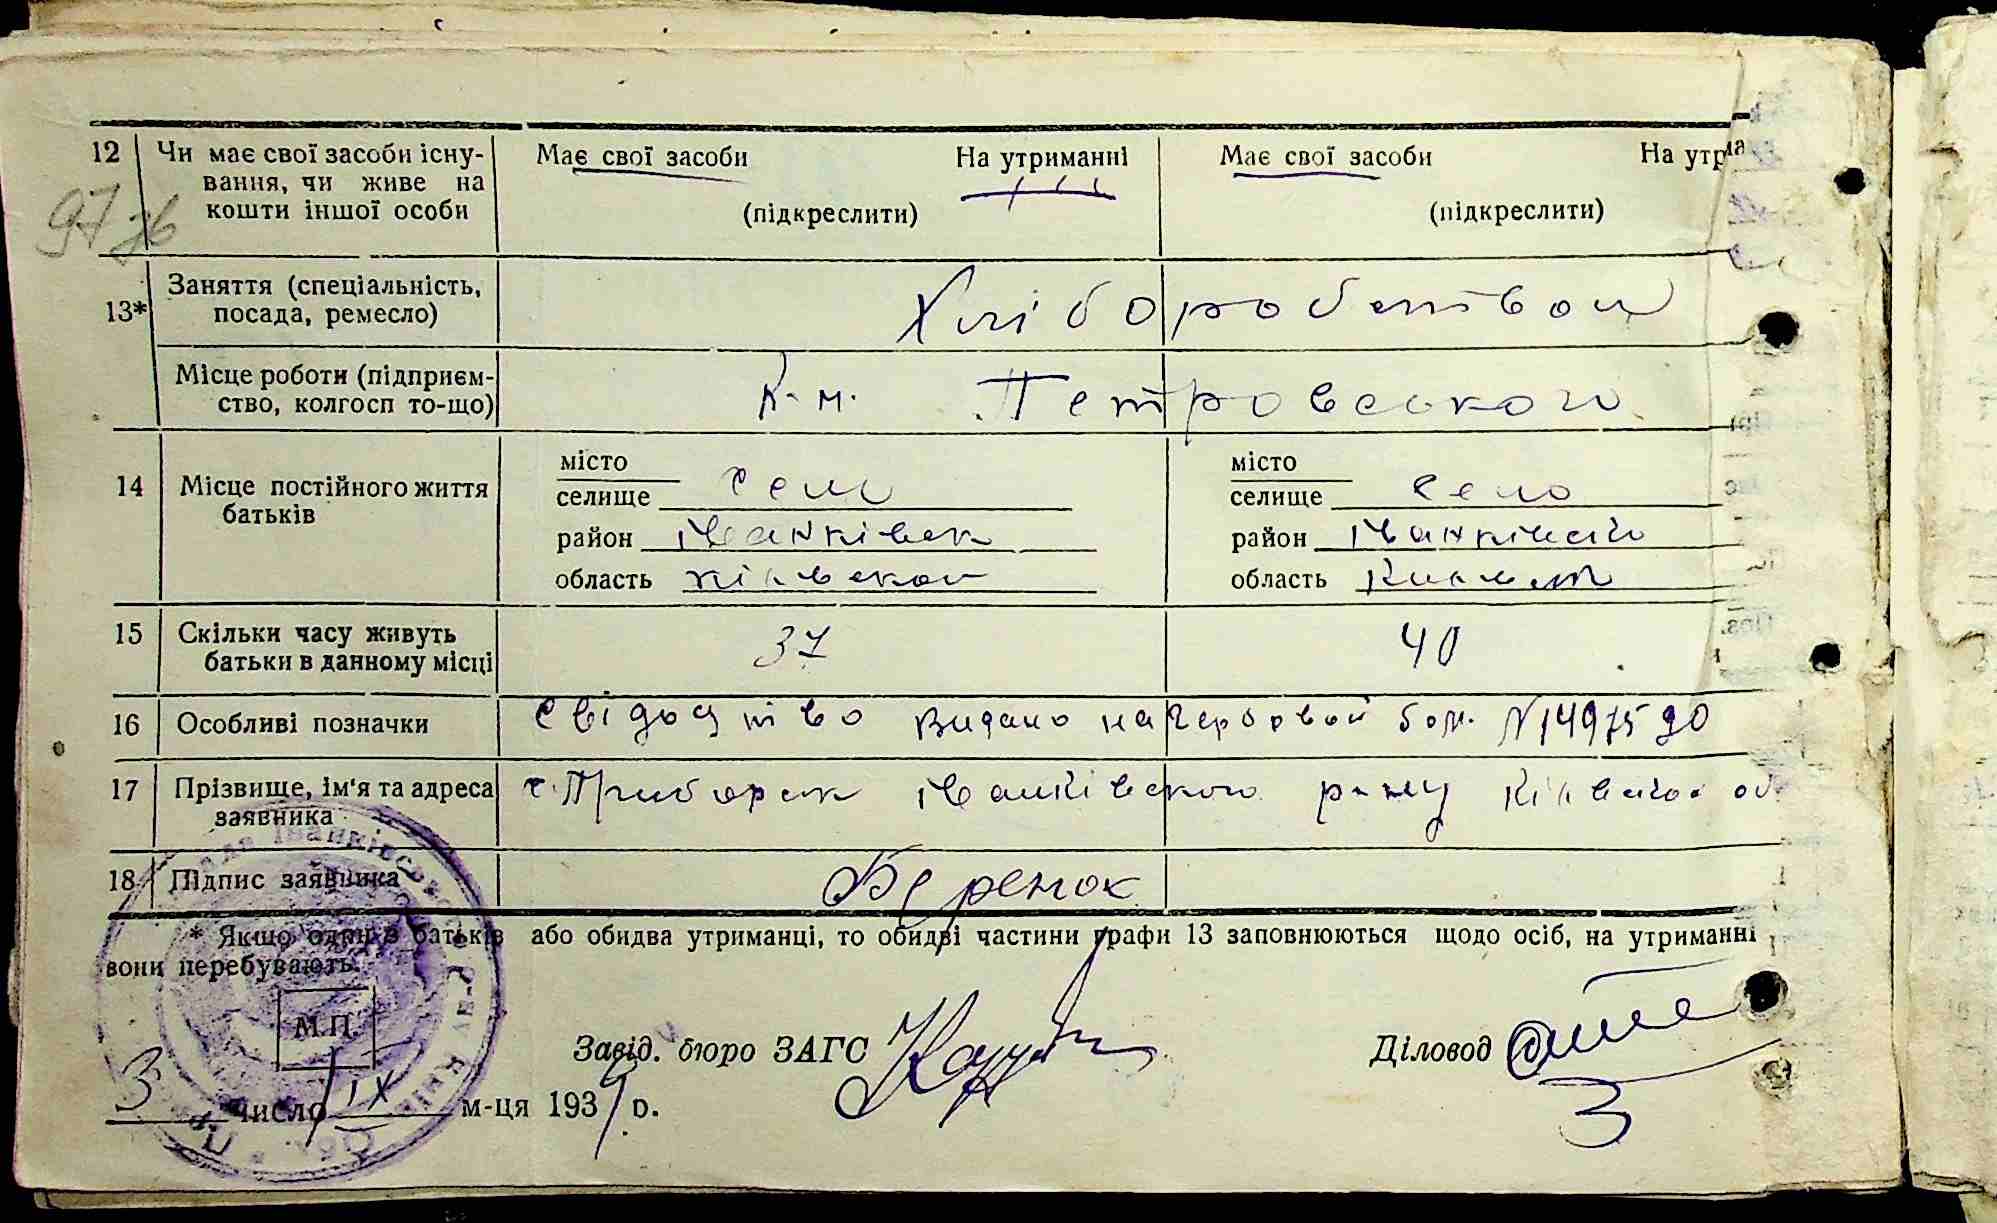 97 зв
12 Чи має свої засоби існу- Має свої засоби На утриманні Має свої засоби На утрима
вання, чи живе на
кошти іншої особи (підкреслити) (підкреслити)
13* Заняття (спеціальність, посада, ремесло) Хліборобством
Місце роботи (підприєм-
ство, колгосп то-що) К-п. Петровського
14 Місце постійного життя батьків
місто місто
селище село селище село
район Іванківськ район Іванківсько
область Київської область
15 Скільки часу живуть
батьки в данному місці 37 40
16 Особливі позначки Свідоцтво видано на гербовой бом. № 1497590
17 Прізвище, ім'я та адреса
заявника с. Приборск Іванківського р-ну Київської об
18 Підпис заявника Беренок
* Якщо один з батьків або обидва утриманці, то обидві частини графи 13 заповнюються щодо осіб, на утриманні
вони перебувають.
М.П.
Завід. бюро ЗАГС Діловод
3 число IX м-ця 1939 р.
3